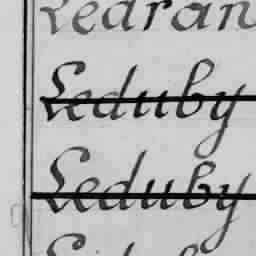 Ledran
Leduby
Leduby